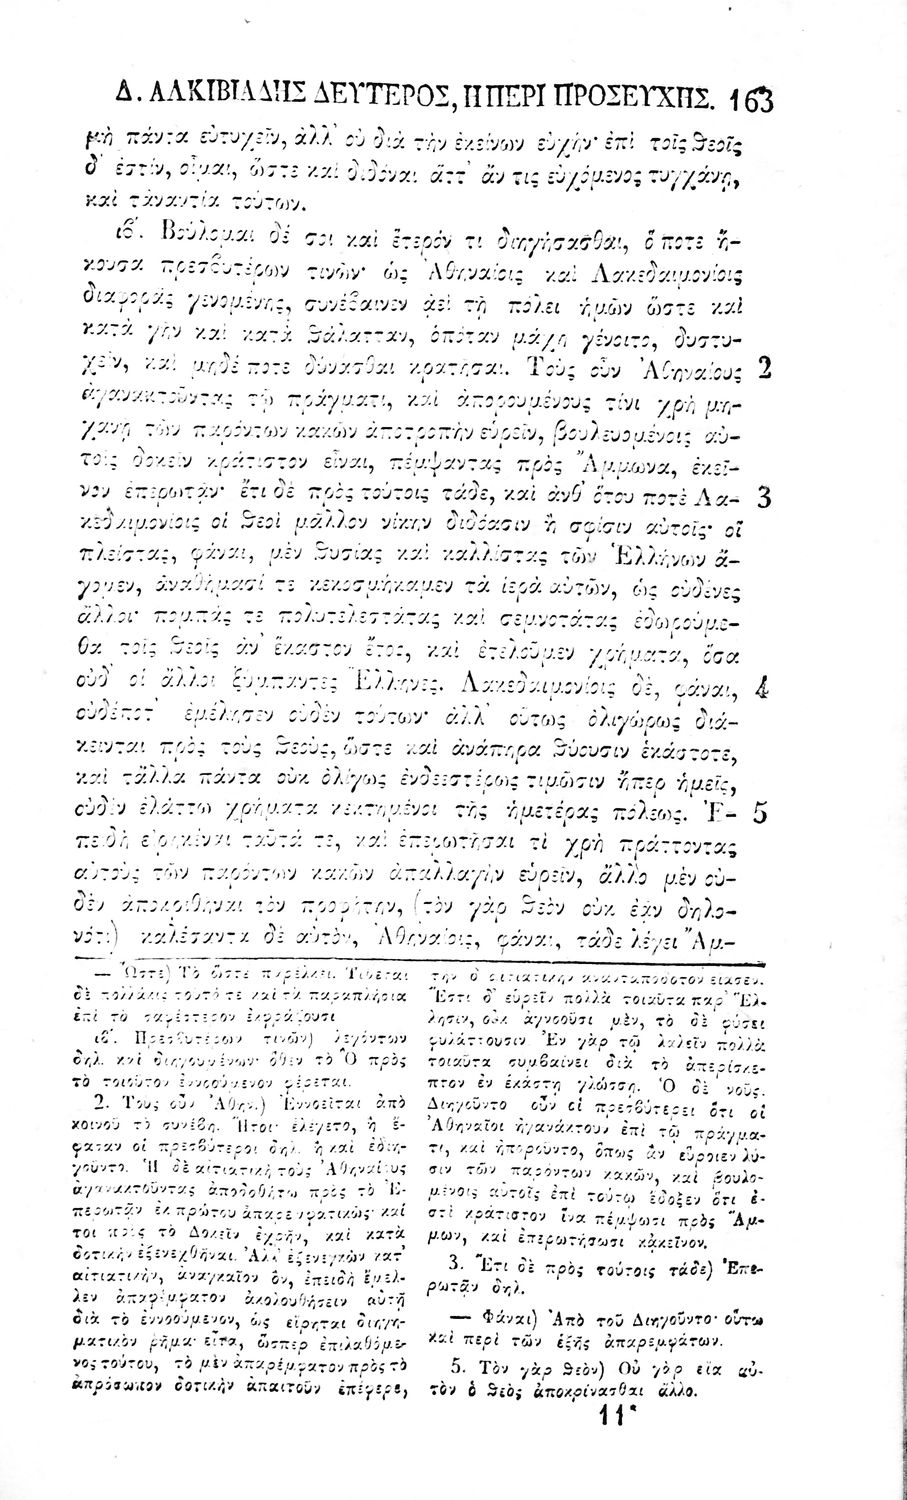 Δ. ΑΛΚΙΒΙΑΔΗΣ ΔΕΥΤΕΡΟΣ, Η ΠΕΡΙ ΠΡΟΣΕΥΧΗΣ. 163
μὴ πάντα εὐτυχεῖν, ἀλλ' οὐ διὰ τὴν ἐκείνων εὐχήν· ἐπὶ τοῖς θεοῖς
δ' ἐστίν, οἶμαι, ὥστε καὶ διδόναι ἅττ' ἄν τις εὐχόμενος τυγχάνῃ,
καὶ τἀναντία τούτων.
ιβ'. Βούλομαι δέ σοι καὶ ἕτερόν τι διηγήσασθαι, ὅ ποτε ἤ-
κουσα πρεσβυτέρων τινῶν· ὡς Ἀθηναίοις καὶ Λακεδαιμονίοις
διαφορᾶς γενομένης, συνέβαινεν ἀεὶ τῇ πόλει ἡμῶν ὥστε καὶ
κατὰ γῆν καὶ κατὰ θάλατταν, ὁπόταν μάχη γένοιτο, δυστυ-
χεῖν, καὶ μηδέ ποτε δύνασθαι κρατῆσαι. Τοὺς οὖν Ἀθηναίους 2
ἀγανακτοῦντας τῷ πράγματι, καὶ ἀπορουμένους τίνι χρὴ μη-
χανῇ τῶν παρόντων κακῶν ἀποτροπὴν εὑρεῖν, βουλευομένοις αὐ-
τοῖς δοκεῖν κράτιστον εἶναι, πέμψαντας πρὸς Ἄμμωνα, ἐκεῖ-
νον ἐπερωτᾶν· ἔτι δὲ πρὸς τούτοις τάδε, καὶ ἀνθ' ὅτου ποτὲ Λα- 3
κεδαιμονίοις οἱ θεοὶ μᾶλλον νίκην διδόασιν ἢ σφίσιν αὐτοῖς· οἳ
πλείστας, φάναι, μὲν θυσίας καὶ καλλίστας τῶν Ἑλλήνων ἄ-
γομεν, ἀναθήμασί τε κεκοσμήκαμεν τὰ ἱερὰ αὐτῶν, ὡς οὐδένες
ἄλλοι· πομπάς τε πολυτελεστάτας καὶ σεμνοτάτας ἐδωρούμε-
θα τοῖς θεοῖς ἀν' ἕκαστον ἔτος, καὶ ἐτελοῦμεν χρήματα, ὅσα
οὐδ' οἱ ἄλλοι ξύμπαντες Ἕλληνες. Λακεδαιμονίοις δὲ, φάναι, 4
οὐδέποτ' ἐμέλησεν οὐδὲν τούτων· ἀλλ' οὕτως ὀλιγώρως διά-
κεινται πρὸς τοὺς θεοὺς, ὥστε καὶ ἀνάπηρα θύουσιν ἑκάστοτε,
καὶ τἄλλα πάντα οὐκ ὀλίγως ἐνδεεστέρως τιμῶσιν ἤπερ ἡμεῖς,
οὐδὲν ἐλάττω χρήματα κεκτημένοι τῆς ἡμετέρας πόλεως. Ἐ- 5
πειδὴ εἰρηκέναι ταῦτά τε, καὶ ἐπερωτῆσαι τί χρὴ πράττοντας
αὐτοὺς τῶν παρόντων κακῶν ἀπαλλαγὴν εὑρεῖν, ἄλλο μὲν οὐ-
δὲν ἀποκριθῆναι τὸν προφήτην, (τὸν γὰρ θεὸν οὐκ ἐᾷν δηλο-
νότι) καλέσαντα δὲ αὐτὸν, Ἀθηναίοις, φάναι, τάδε λέγει Ἄμ-
— Ὥστε) Τὸ ὥστε παρέλκει. Γίνεται
δὲ πολλάκις τοῦτό τε καὶ τὰ παραπλήσια
ἐπὶ τὸ σαφέστερον ἐκφράζουσι
ιβ'. Πρεσβυτέρων τινῶν) λεγόντων
δηλ. καὶ διηγουμένων· ὅθεν τὸ Ὃ πρὸς
τὸ τοιοῦτον ἐννοούμενον φέρεται.
2. Τοὺς οὖν Ἀθην.) Ἐννοεῖται ἀπὸ
κοινοῦ τὸ συνέβη. Ἤτοι ἐλέγετο, ἢ ἔ-
φασαν οἱ πρεσβύτεροι δηλ. ἢ καὶ ἐδιη-
γοῦντο. Ἡ δὲ αἰτιατικὴ τοὺς Ἀθηναίους
ἀγανακτοῦντας ἀποδοθήτω πρὸς τὸ Ἐ-
περωτᾶν ἐκ πρώτου ἀπαρεμφατικῶς· καί
τοι πρὸς τὸ Δοκεῖν ἐχρῆν, καὶ κατὰ
δοτικὴν ἐξενεχθῆναι. Ἀλλ' ἐξενεγκὼν κατ'
αἰτιατικὴν, ἀναγκαῖον ὂν, ἐπειδὴ ἔμελ-
λεν ἀπαρέμφατον ἀκολουθήσειν αὐτῇ
διὰ τὸ ἐννοούμενον, ὡς εἴρηται διηγη-
ματικὸν ῥῆμα· εἶτα, ὥσπερ ἐπιλαθόμε-
νος τούτου, τὸ μὲν ἀπαρέμφατον πρὸς τὸ
ἀπρόσωπον δοτικὴν ἀπαιτοῦν ἐπέφερε,
τὴν δ' αἰτιατικὴν ἀνανταπόδοτον εἴασεν.
Ἔστι δ' εὑρεῖν πολλὰ τοιαῦτα παρ' Ἕλ-
λησιν, οὐκ ἀγνοοῦσι μὲν, τὸ δὲ φύσει
φυλάττουσιν Ἐν γὰρ τῷ λαλεῖν πολλὰ
τοιαῦτα συμβαίνει διὰ τὸ ἀπερίσκε-
πτον ἐν ἑκάστῃ γλώσσῃ. Ὁ δὲ νοῦς.
Διηγοῦντο οὖν οἱ πρεσβύτεροι ὅτι οἱ
Ἀθηναῖοι ἠγανάκτουν ἐπὶ τῷ πράγμα-
τι, καὶ ἠποροῦντο, ὅπως ἂν εὕροιεν λύ-
σιν τῶν παρόντων κακῶν, καὶ βουλο-
μένοις αὐτοῖς ἐπὶ τούτῳ ἔδοξεν ὅτι ἐ-
στὶ κράτιστον ἵνα πέμψωσι πρὸς Ἄμ-
μων, καὶ ἐπερωτήσωσι κἀκεῖνον.
3. Ἔτι δὲ πρὸς τούτοις τάδε) Ἐπε-
ρωτᾶν δηλ.
— Φάναι) Ἀπὸ τοῦ Διηγοῦντο· οὕτω
καὶ περὶ τῶν ἑξῆς ἀπαρεμφάτων.
5. Τὸν γὰρ θεὸν) Οὐ γὰρ εἴα αὐ-
τὸν ὁ θεὸς ἀποκρίνασθαι ἄλλο.
11*